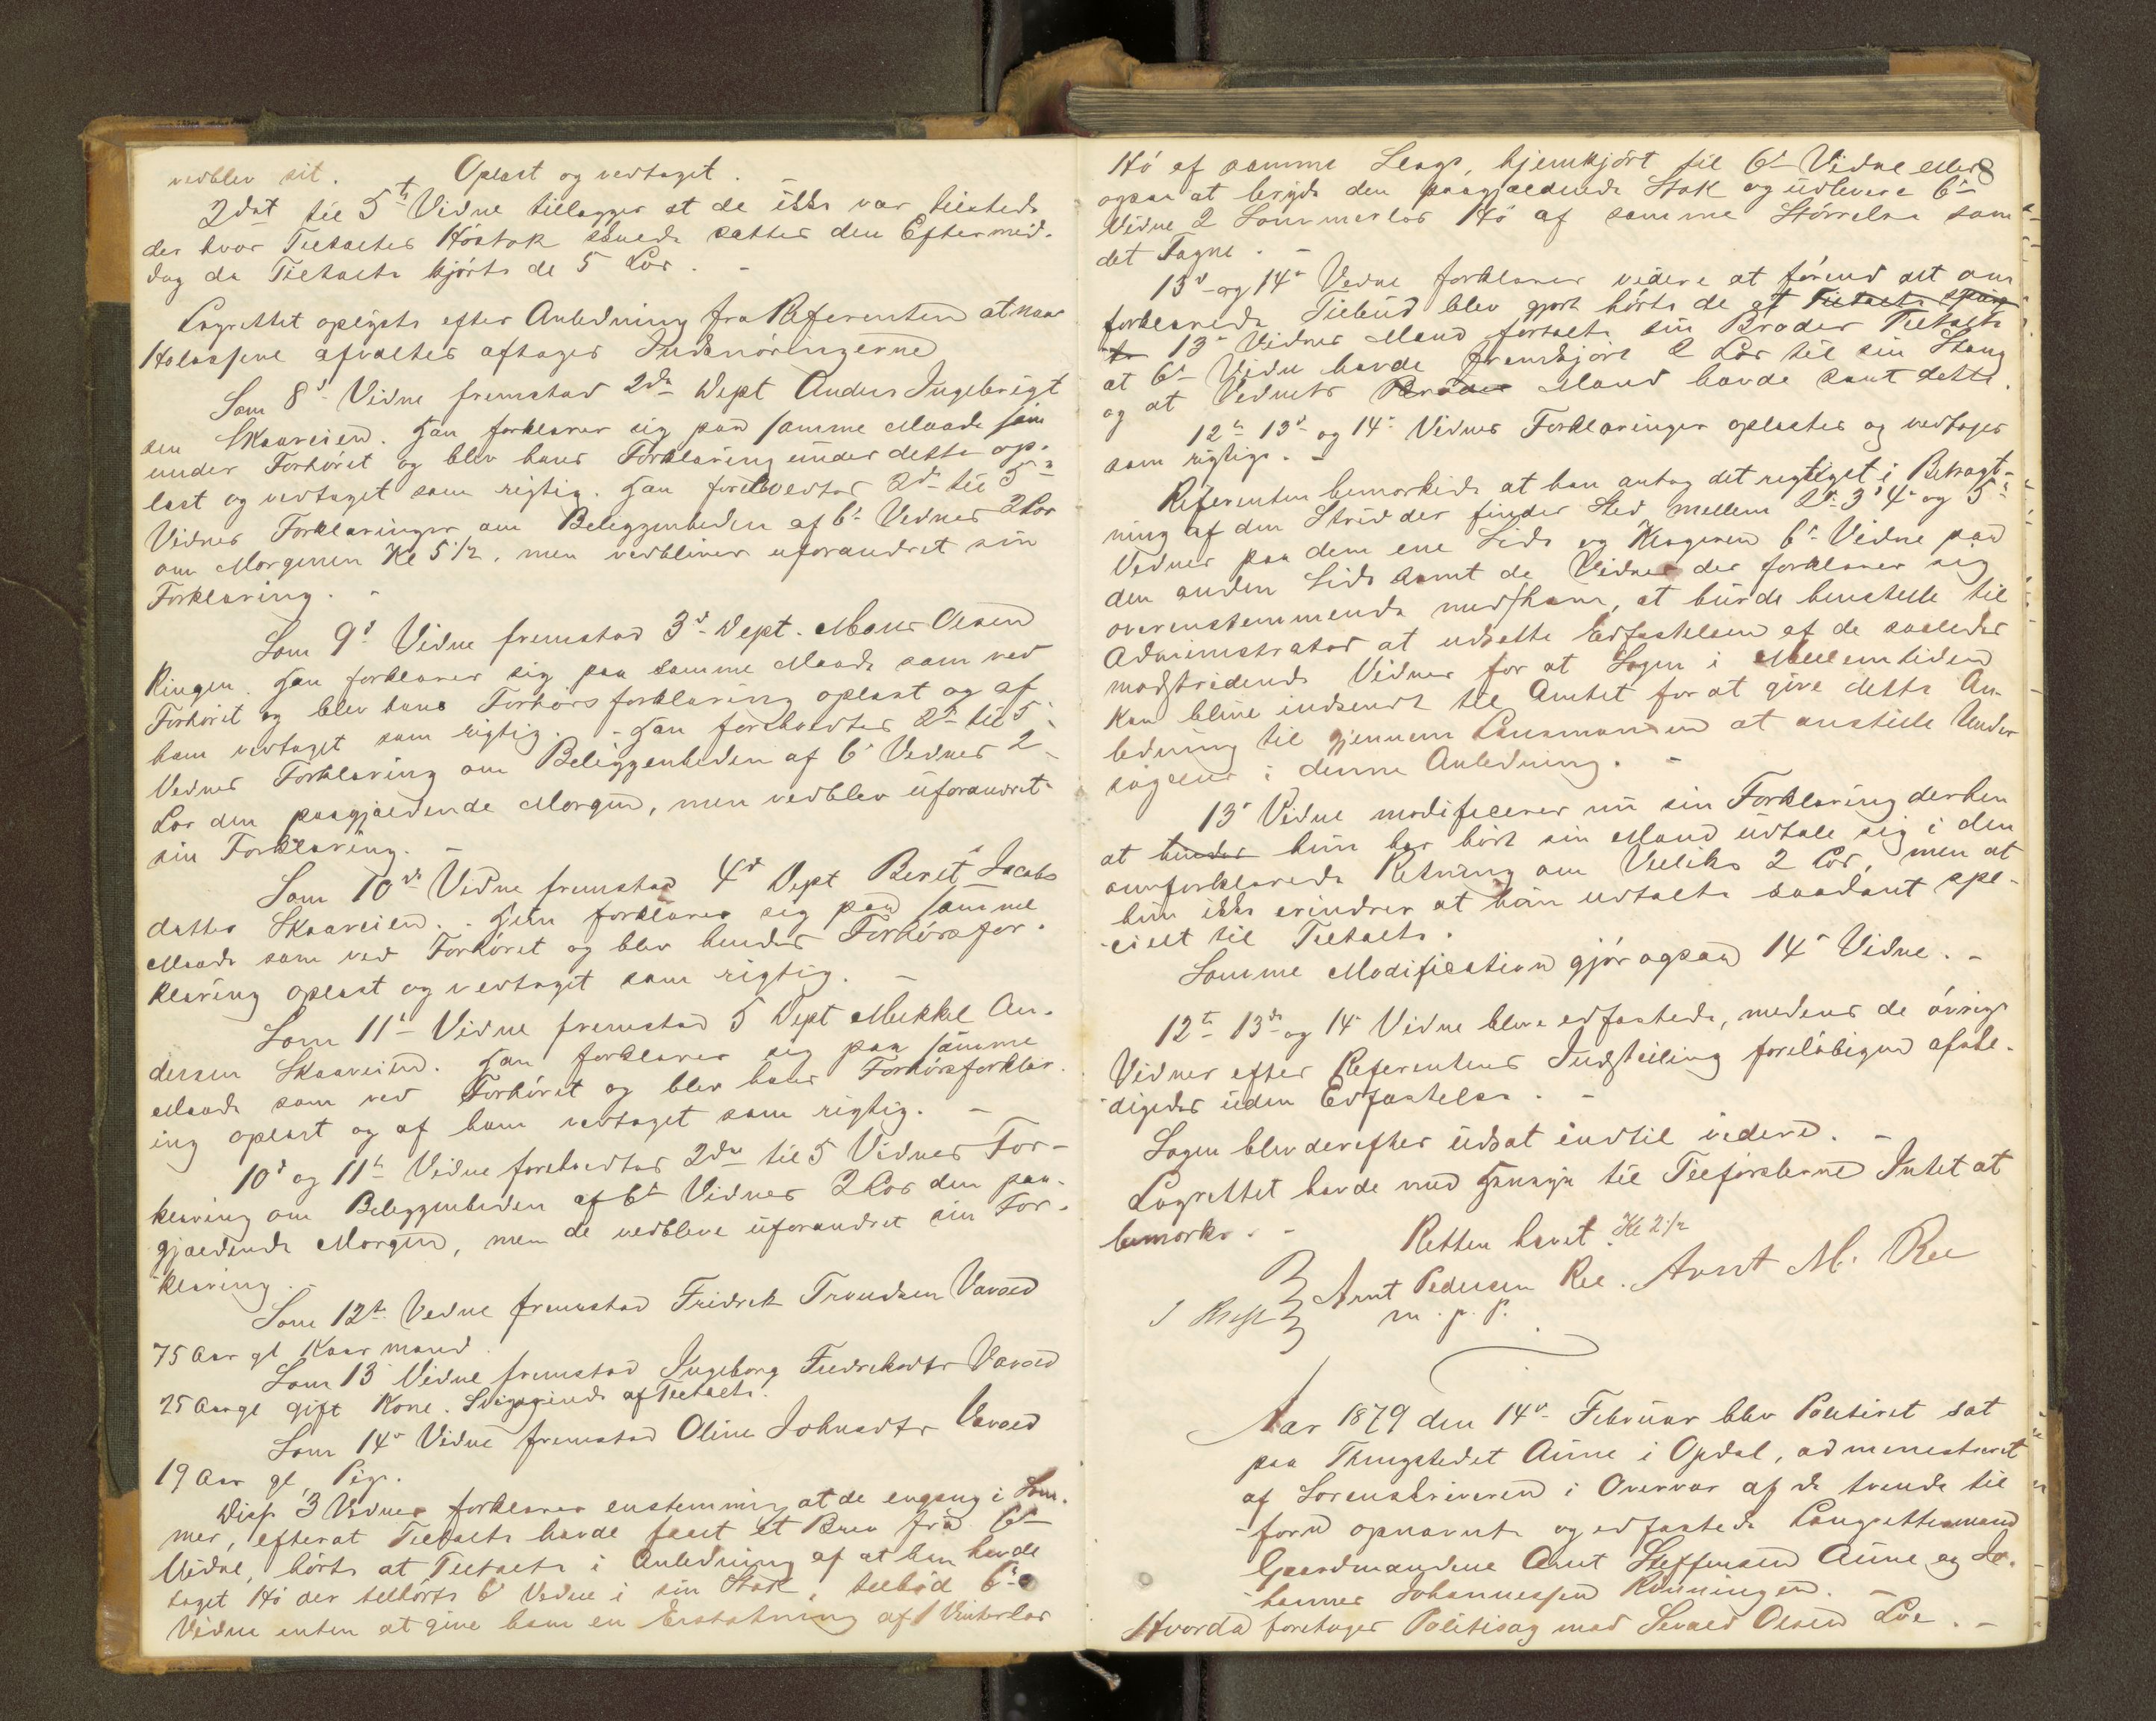 vedblev sit. Oplæst og vedtaget. –
2det til 5te Vidne tillægger at de ikke var tilstede
der hvor Tiltaltes Höstak saaede sattes den Eftermid-
dag da Tiltalte kjörte de 5 Lös. –
Lagrettet oplyste efter Anledning fra Referenten at naar
Hölassene afvæltes aftages Indsnöringerne
Som 8d Vidne fremstod 2de Dept Anders Ingebrigt
sen Skaaveien. Han forklarer sig paa samme Maade som
under Forhöret og blev hans Forklaring under dette op-
læst og vedtaget som rigtig. Han foreholdtes 2d til 5te
Vidnes Forklaringer om Beliggenheden af 6te Vidnes 2 Lös
om Morgenen Kl 5 1/2, men vedbliver uforandret sin
Forklaring. –
Som 9d Vidne fremstod 3d Dept. Mons Olsen
Ringen. Han forklarer sig paa samme Maade som ved
Forhöret og blev hans Forhörsforklaring oplæst og af
ham vedtaget som rigtig. – Han foreholdtes 2d til 5
Vidnes Forklaring om Beliggenheden af 6 Vidnes 2
Lös den paagjældende Morgen, men vedblev uforandret
sin Forklaring. –
Som 10de Vidne fremstod 4d Dept Berit Jacobs
datter Skaaveien. Hun forklarer sig paa samme
Maade som ved Forhöret og blev hendes Forhörsfor-
klaring oplæst og vedtaget som rigtig. –
Som 11te Vidne fremstod 5 Dept Mikkel An-
dersen Skaaveien. Han forklarer sig paa samme
Maade som ved Forhöret og blev hans Forhörsforklar-
ing oplæst og af ham vedtaget som rigtig. –
10d og 11te Vidne foreholdtes 2de til 5 Vidnes For-
klaring om Beliggenheden af 6te Vidnes 2 Lös den paa-
gjældende Morgen, men de vedbleve uforandret sin For-
klaring. –
Som 12te Vidne fremstod Fridrik Trondsen Vavold
75 Aar gl Kaarmand.
Som 13 Vidne fremstod Ingeborg Fredriksdtr Vavold
25 Aar gl gift Kone. Svigerinde af Tiltalte.
Som 14d Vidne fremstod Oline Johnsdtr Vavold
19 Aar gl, Pige.
Disse 3 Vidner forklarer enstemmig at de engang i Som-
mer, efterat Tiltalte havde faaet et Brev fra 6te
Vidne, hörte at Tiltalte i Anledning af at han havde
taget Hö der tilhörte 6 Vidne i sin Stak, tilböd 6te
Vidne enten at give ham en Erstatning af 1 Vinterlæs
8
Hö af samme Slags, hjemkjört til 6te Vidne eller
ogsaa at bryde den paagjældende Stak og udlevere 6te
Vidne 2 Sommerlæs Hö af samme Störrelse som
det Tagne. –
13d og 14de Vidne forklarer videre at förend det om
forklarede Tilbud blev gjort hörte de at Tiltalte spurg
te 13de Vidnes Mand fortalte sin Broder Tiltalte
at 6te Vidne havde fremkjört 2 Lös til sin Stang
og at Vidnets Broder Mand havde sent dette.
12te 13d og 14de Vidnes Forklaringer oplæstes og vedtages
som rigtige. –
Referenten bemærkede at han antog det rigtigst i Betragt-
ning af den Strid der finder Sted mellem 2d 3d 4de og 5te
Vidner paa den ene Side og Klageren 6te Vidne paa
den anden Side samt de Vidner der forklarer sig
overenstemmende med ham, at burde henstille til
Administrator at udsætte Edfæstelsen af de saaledes
modstridende Vidner for at Sagen i Mellemtiden
kan blive indsendt til Amtet for at give dette An-
ledning til gjennem Lensmanden at anstille Under-
sögelse i denne Anledning. –
13de Vidne modificerer nu sin Forklaring derhen
at hendes hun har hört sin Mand udtale sig i den
omforklarede Retning om Veliks 2 Lös, men at
hun ikke erindrer at han udtalte saadant spe-
cielt til Tiltalte.
Samme Modification gjör ogsaa 14de Vidne. –
12te 13de og 14 Vidne bleve edfæstede, medens de övrige
Vidner efter Referentens Indstilling foreløbigen afskee-
digedes uden Edfæstelse. –
Sagen blev derefter udsat indtil videre. –
Lagrettet havde med Hensyn til Tilförslerne Intet at
bemærke. –
Retten hævet. Kl 2 1/2
Arnt Pedersen Ree. Arnt M. Ree
m. p. P.
Aar 1879 den 14de Februar blev Politiret sat
paa Thingstedet Aune i Opdal, administreret
af Sorenskriveren i Overvær af de tvende til
forn opnævnte og edfæstede Laugrettesmænd
Gaardmændene Arnt Steffensen Aune og Jo-
hannes Johannessen Rönningen. –
Hvorda foretages Politisag mod Sivert Olsen Löe. –